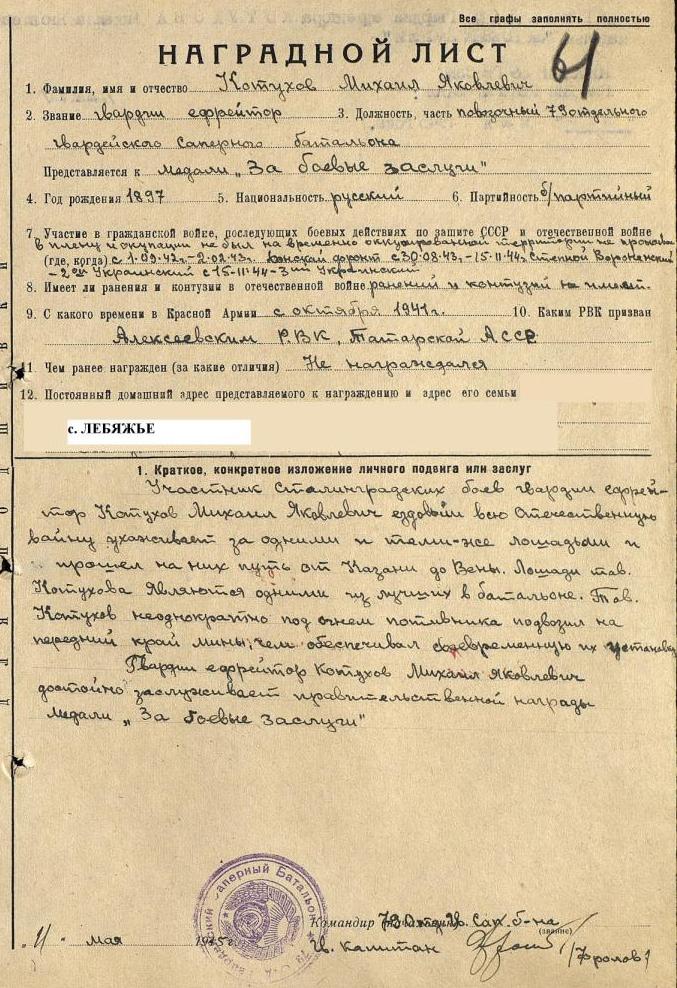 Все графы заполнять полностью
61
НАГРАДНОЙ ЛИСТ
1. Фамилия, имя и отчество Котухов Михаил Яковлевич
2. Звание гвардии ефрейтор 3. Должность, часть повозочный 79 отдельного
гвардейского саперного батальона
Представляется к медали „За боевые заслуги"
4. Год рождения 1897 5. Национальность русский 6. Партийность б/партийный
7. Участие в гражданской войне, последующих боевых действиях по защите СССР и отечественной войне
в плену и окупации не был на временно оккупированной территории не проживал
(где, когда) с 1.09.42г - 2.02.43г. Донской фронт с 30.08.43, -15.11.44г Степной Воронежский
- 2ой Украинский с 15.11.44 - 3ий Украинский
8. Имеет ли ранения и контузии в отечественной войне ранений и контузий не имеет.
9. С какого времени в Красной Армии с октября 1941г. 10. Каким РВК призван
Алексеевским РВК, Татарской АССР
11 Чем ранее награжден (за какие отличия) Не награждался
12. Постоянный домашний адрес представляемого к награждению и адрес его семьи
с. ЛЕБЯЖЬЕ
1. Краткое, конкретное изложение личного подвига или заслуг
Участник Сталинградских боев гвардии ефрей-
тор Котухов Михаил Яковлевич ездовый всю Отечественную
войну ухаживает за одними и теми-же лошадьми и
прошел на них путь от Казани до Вены. Лошади тов.
Котухова являются одними из лучших в батальоне. Тов.
Котухов неоднократно под огнем потивника подвозил на
передний край мины, чем обеспечивал своевременную их установку
Гвардии ефрейтор Котухов Михаил Яковлевич
достойно заслуживает правительственной награды
медали „За боевые заслуги"
Саперный Батальон
Командир 79 Отд. Гв. Сап. б-на
(звание)
„11" мая 1945 г. Гв. капитан /Фролов/